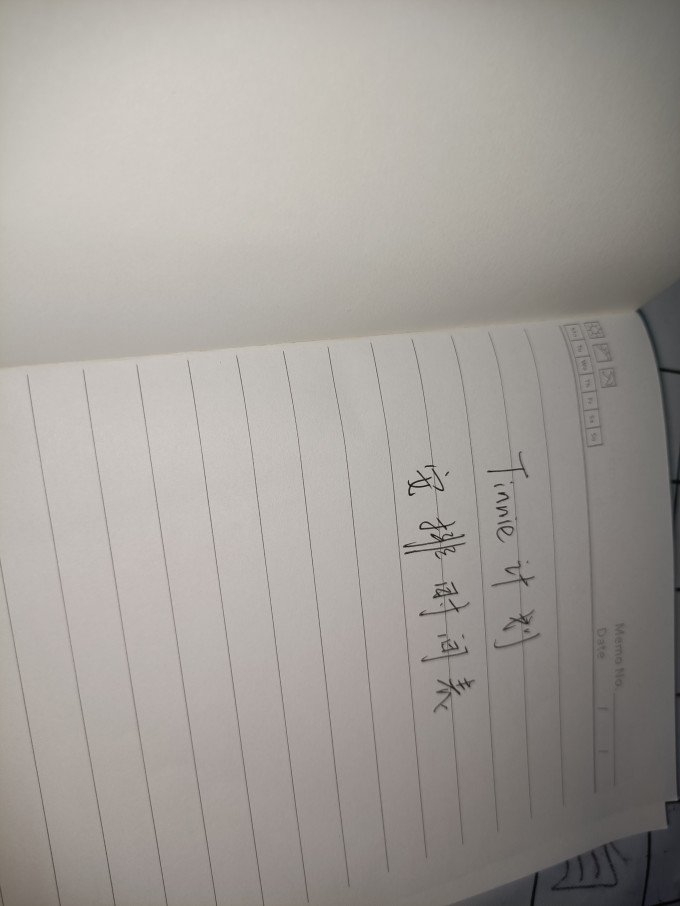 Memo No.
Date / /
Tinnie 计划
安排时间表